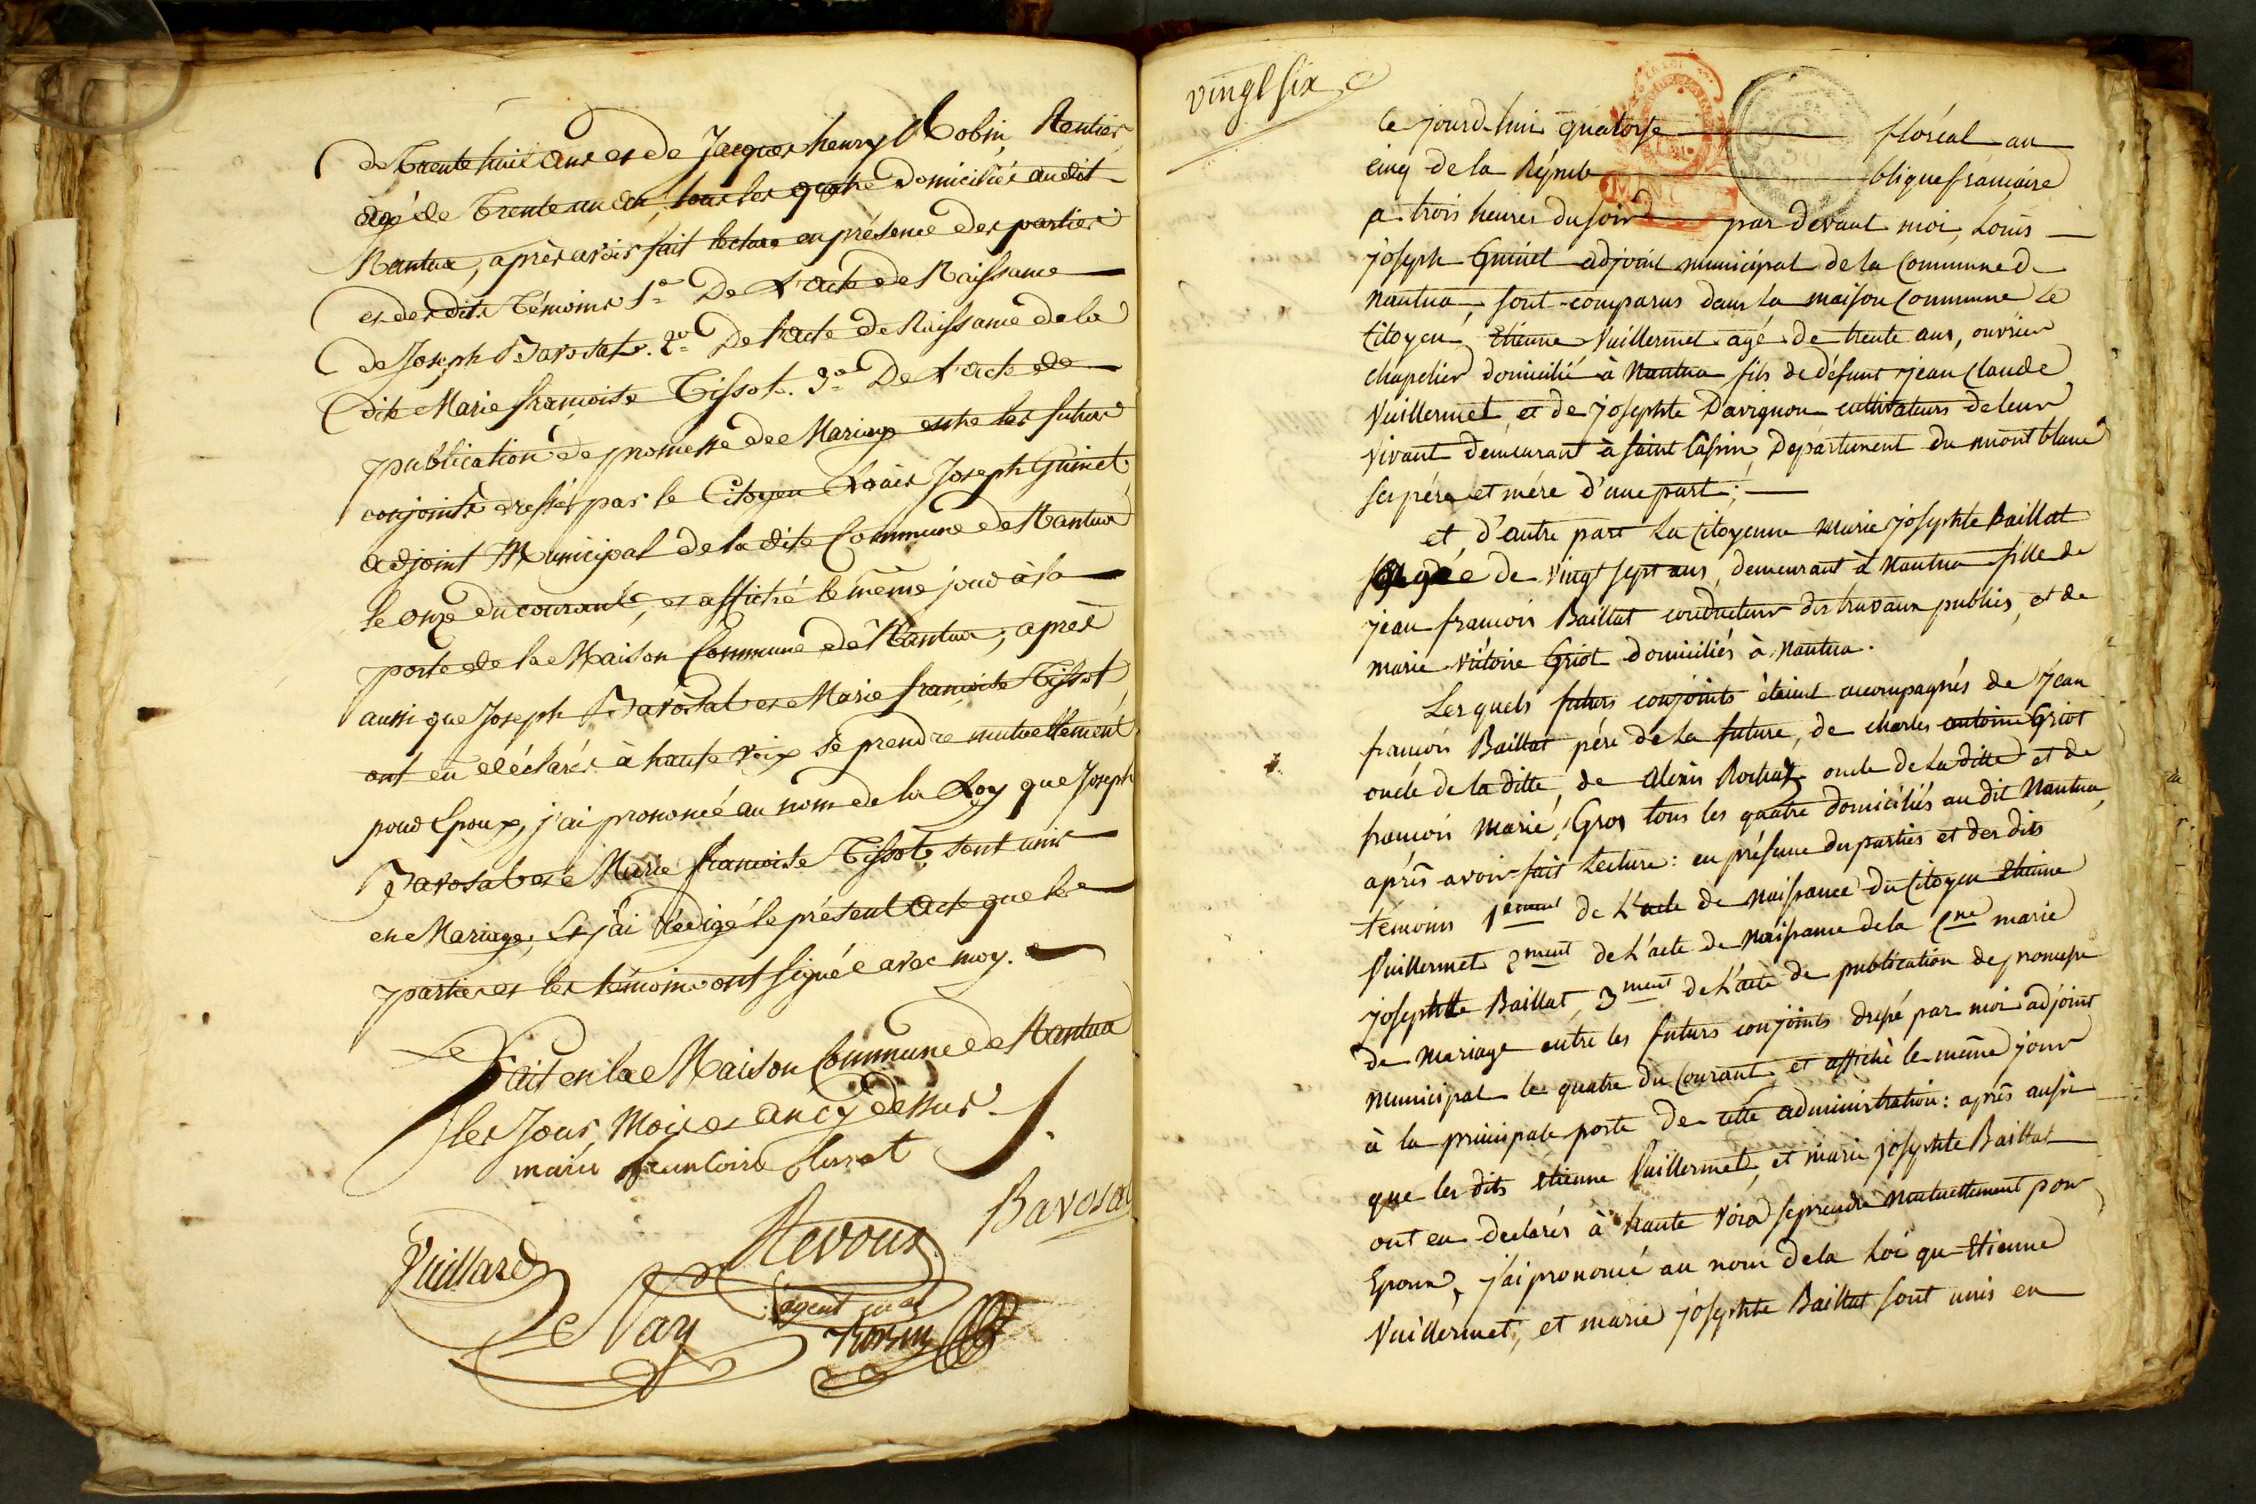 de Trente huit ans et de Jacques henry Robin, Rentier
agé de Trente un an, tous les quatre Domiciliés audit
Nantua, après avoir fait lecture en présence des parties
et des dits Témoins 1º De L'acte de Naissance
de Joseph Bavosat. 2º De L'acte de Naissance de la
dite Marie françoise Tissot. 3º De L'acte de
publication de promesse de Mariage entre les futurs
conjoints dressé par le Citoyen Louis Joseph Guinet
adjoint Municipal de la dite Commune de Nantua
le onze du courant, et affiché le même jour à la
porte de la Maison Commune de Nantua; après
aussi que Joseph Bavosat et Marie françoise Tissot
ont eu déclarés à haute voix se prendre mutuellement
pour Epoux, j'ai prononcé au nom de la Loy que Joseph
Bavosat et Marie francoise Tissot, sont unis
en Mariage, Et j'ai Rédigé le présent acte que les
parties et les témoins ont signé avec moy.
Fait en la Maison Commune de Nantua
les Jour, Mois et an cy dessus
marie
Bavosat
Vuillard
Nevoux
Le Nay
agent
Robin
vingt six e
Ce jourd-hui quatorse floréal an
cinq de la Répub blique francaise
a trois heures du soir par devant moi, Louis
joseph Guinet adjoint municipal de la Commune de
nantua, sont comparus dans la maison Commune Le
Citoyen, Etienne Vuillermet agé de trente ans, ouvrier
chapelier domicilié à Nantua fils de défunt jean Claude
Vuillermet, et de josephte Davignon cultivateurs de leur
vivant demeurant à saint Cassin, Département du mont blanc
ses père et mére d'une part;
et, d'autre part La Citoyenne Marie josephte Baillat
agée de vingt sept ans, demeurant à Nantua fille de
jean francois Baillat conducteur des travaux publics, et de
marie victoire Griot domiciliés à Nantua.
Lesquels futurs conjoints étoient accompagnés de jean
françois Baillat pére de la future, de charles antoine Griot
oncle de la ditte, de Alexis Rochat oncle de la ditte et de
francois Marie, Gros tous les quatre domiciliés au dit Nantua,
aprés avoir fait Lecture: en présence des parties et des dits
témoins 1ement de L'acte de Naissance du Citoyen Etienne
Vuillermet, 2ment de L'acte de Naissance de la Cne marie
josephte Baillat, 3ment de L'acte de publication de promesse
de Mariage entre les futurs conjoints dressé par moi adjoint
Municipal le quatre du Courant, et affiché le même jour
à la principale porte de cette administration: aprés aussi
que les dits Etienne Vuillermet, et marie josephte Baillat
ont eu declarés à haute voix se prendre Mutuellement pour
Epoux, j'ai prononcé au nom de la Loi qu Etienne
Vuillermet, et marie josephte Baillat sont unis en